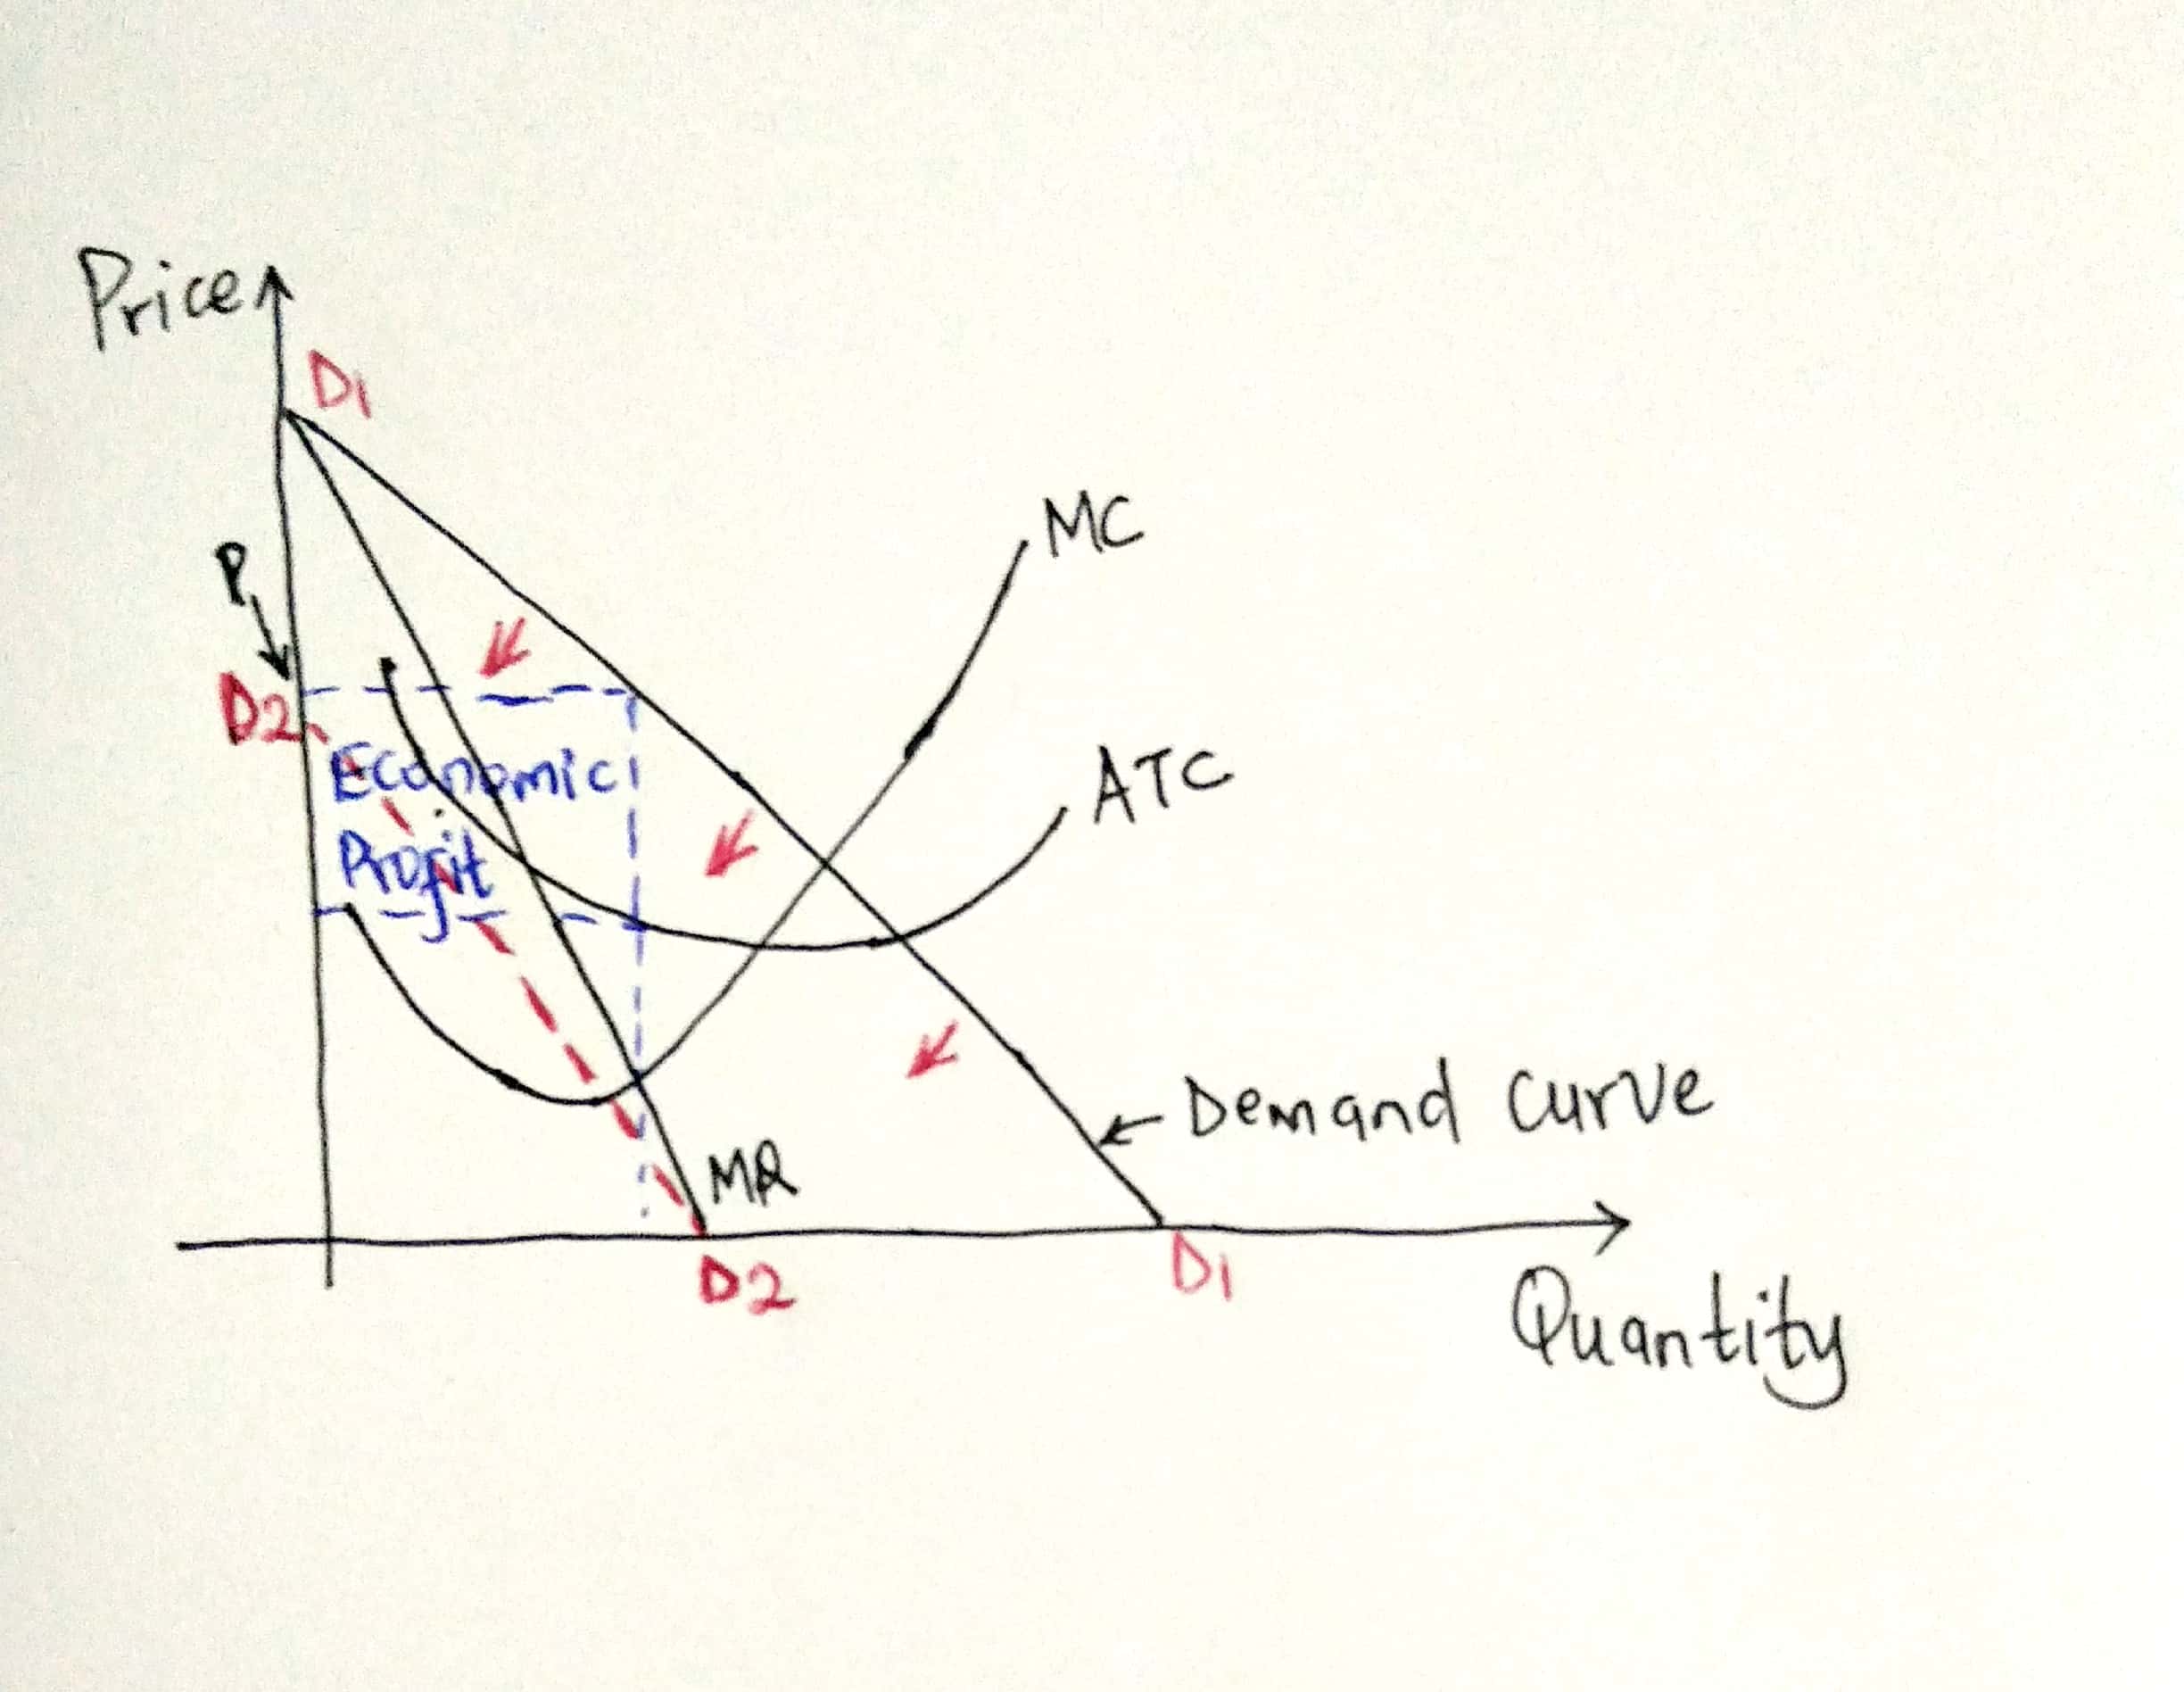 Price
D1
MC
P
D2
ATC
Economic
Profit
Demand curve
MR
D2
D1
Quantity